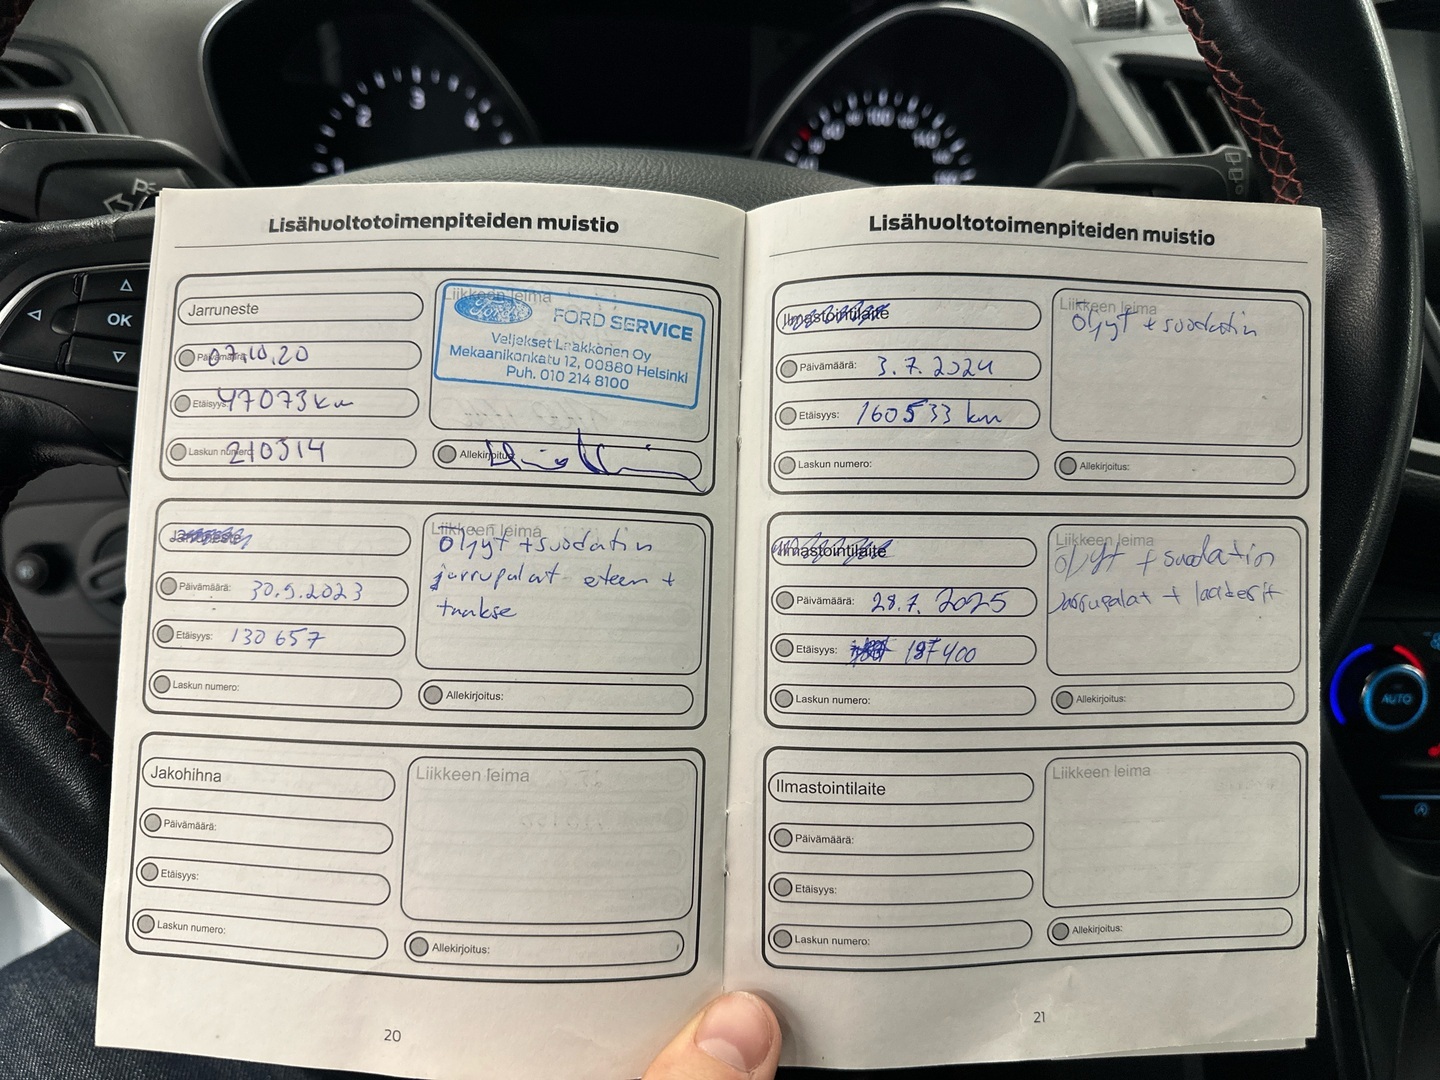 2
3
4
60
80
100
120
140
P
OK
AUTO
Lisähuoltotoimenpiteiden muistio
Jarruneste
Päivämäärä: 07.10.20
Etäisyys: 47073 km
Laskun numero: 210314
Liikkeen leima
Ford
FORD SERVICE
Veljekset Laakkonen Oy
Mekaanikonkatu 12, 00880 Helsinki
Puh. 010 214 8100
Allekirjoitus:
Jarruneste
Päivämäärä: 30.5.2023
Etäisyys: 130 657
Laskun numero:
Liikkeen leima
Öljyt + suodatin
jarrupalat eteen +
taakse
Allekirjoitus:
Jakohihna
Päivämäärä:
Etäisyys:
Laskun numero:
Liikkeen leima
Allekirjoitus:
20
Lisähuoltotoimenpiteiden muistio
Ilmastointilaite
Päivämäärä: 3.7.2024
Etäisyys: 160533 km
Laskun numero:
Liikkeen leima
Öljyt + suodatin
Allekirjoitus:
Ilmastointilaite
Päivämäärä: 28.7.2025
Etäisyys: 187400
Laskun numero:
Liikkeen leima
Öljyt + suodatin
Jarrupalat + laakerit
Allekirjoitus:
Ilmastointilaite
Päivämäärä:
Etäisyys:
Laskun numero:
Liikkeen leima
Allekirjoitus:
21